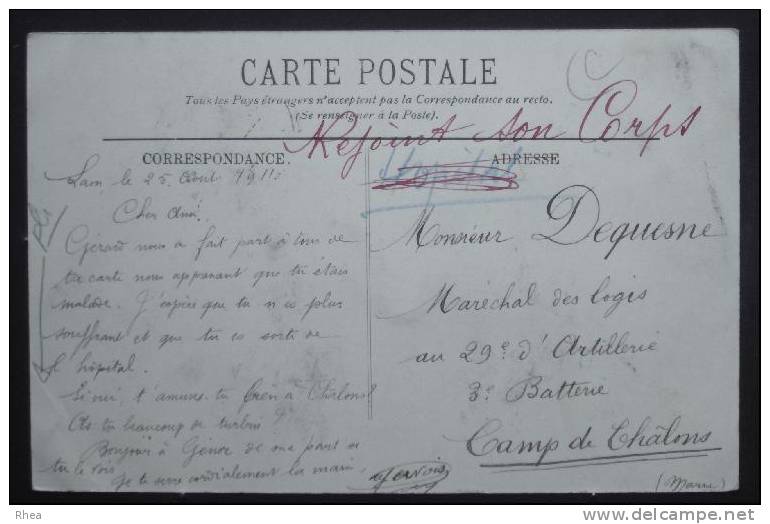 CARTE POSTALE
Tous les Pays étrangers n'acceptent pas la Correspondance au recto.
(Se renseigner à la Poste).
Rejoint son Corps
CORRESPONDANCE.
ADRESSE
Hôpital
Laon, le 25 Août 1911
Cher Ami,
Gérard nous a fait part à tous de
ta carte nous apprenant que tu étais
malade. J'espère que tu n'es plus
souffrant et que tu es sorti de
l'hôpital.
Si oui, t'amuses-tu bien à Châlons?
As-tu beaucoup de turbin?
Bonjour à de ma part si
tu le vois. Je te serre cordialement la main.
Monsieur Dequesne
Maréchal des logis
au 29e d'Artillerie
3e Batterie
Camp de Châlons
(Marne)
Rhea
www.delcampe.net